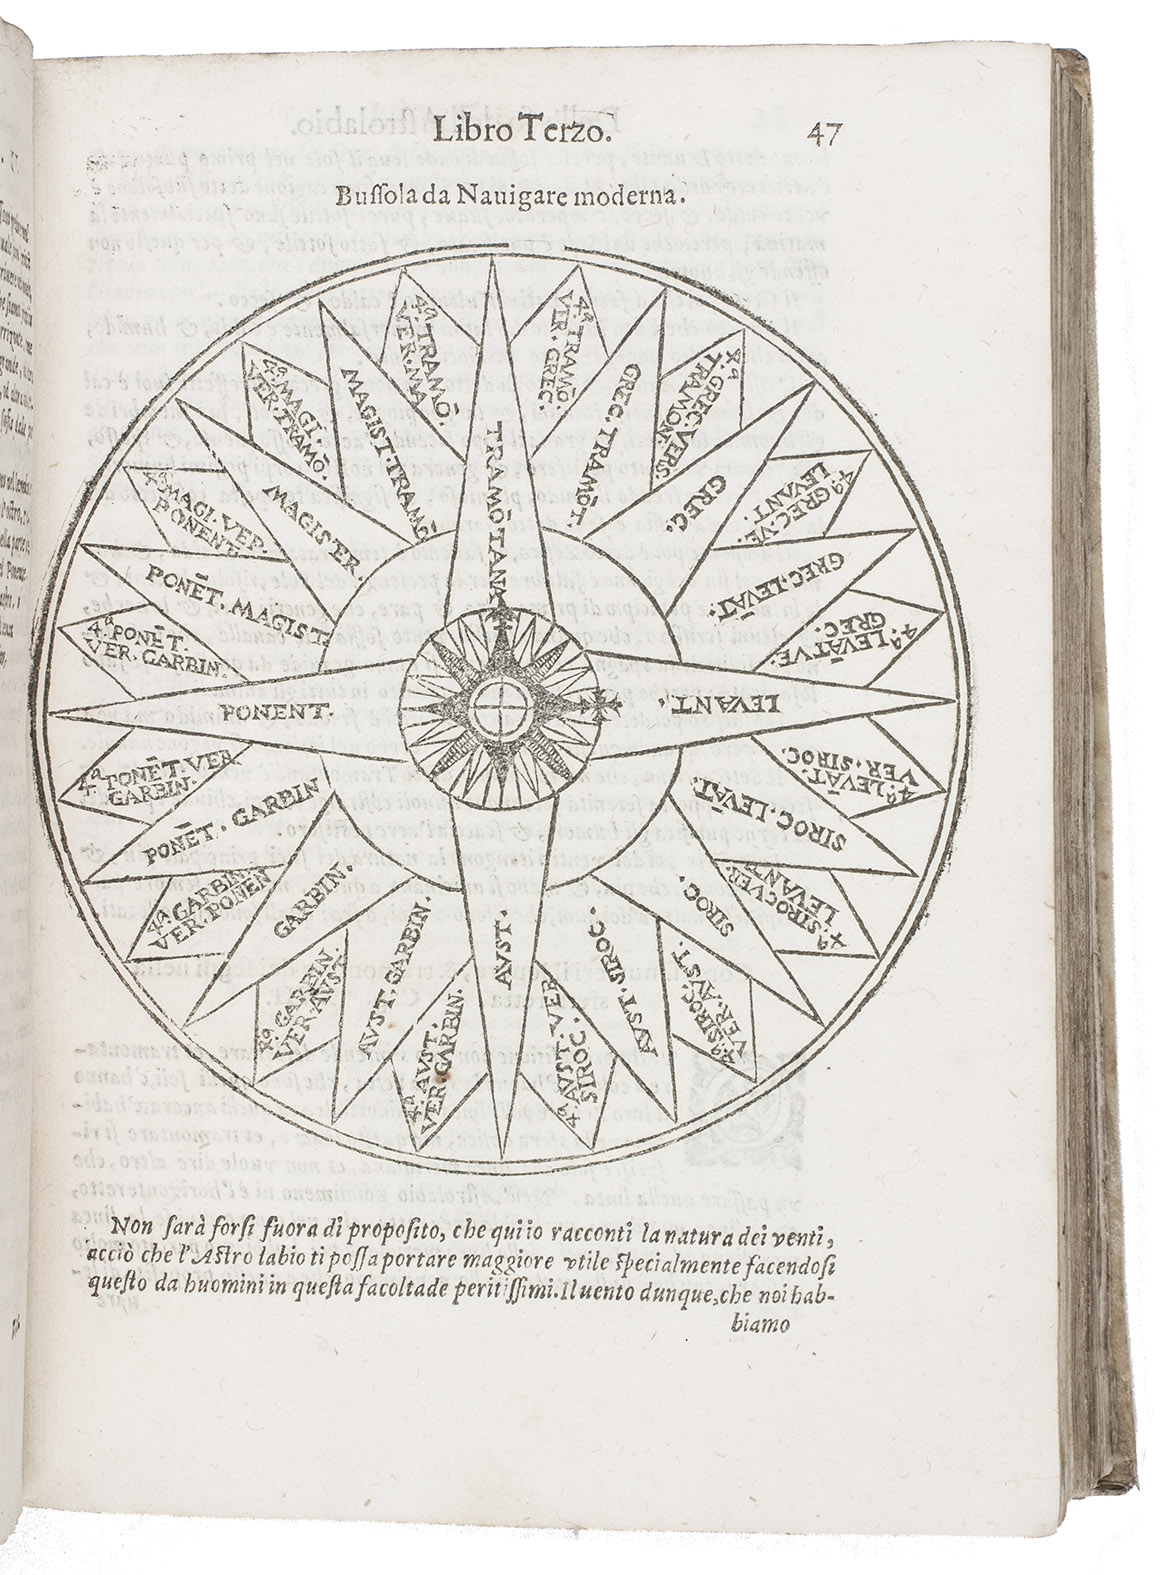 Libro Terzo.
47
Bussola da Nauigare moderna.
TRAMŌTANA
4ª. TRAMŌ.
VER. GREC.
GREC. TRAMŌT.
4ª. GREC. VERS.
TRAMON.
GREC.
4ª GREC. VE.
LEVANT.
GREC. LEVĀT.
4ª LEVĀT VE.
GREC.
LEVANT.
4ª LEVĀT.
VER. SIROC.
SIROC. LEVĀT.
4ª. SIROC VER.
LEVANT
SIROC.
4ª. SIROC.
VER. AVST.
AVST. SIROC.
4ª AVST. VER
SIROC.
AVST.
4ª. AVST.
VER. GARBIN.
AVST. GARBIN.
4ª. GARBIN
VER AVST
GARBIN.
4ª. GARBIN
VER. PONEN
PONĒT. GARBIN
4ª PONĒT. VER
GARBIN.
PONENT.
4ª PONĒT.
VER. GARBIN.
PONĒT. MAGIST
4ª MAGI. VER.
PONENT.
MAGISTER.
4ª. MAGI.
VER. TRAMŌ.
MAGIST. TRAMŌ
4ª. TRAMŌ.
VER. MA
Non sarà forsi fuora di proposito, che qui io racconti la natura dei venti,
acciò che l'Astro labio ti possa portare maggiore vtile specialmente facendosi
questo da huomini in questa facoltade peritissimi. Il uento dunque, che noi hab-
biamo